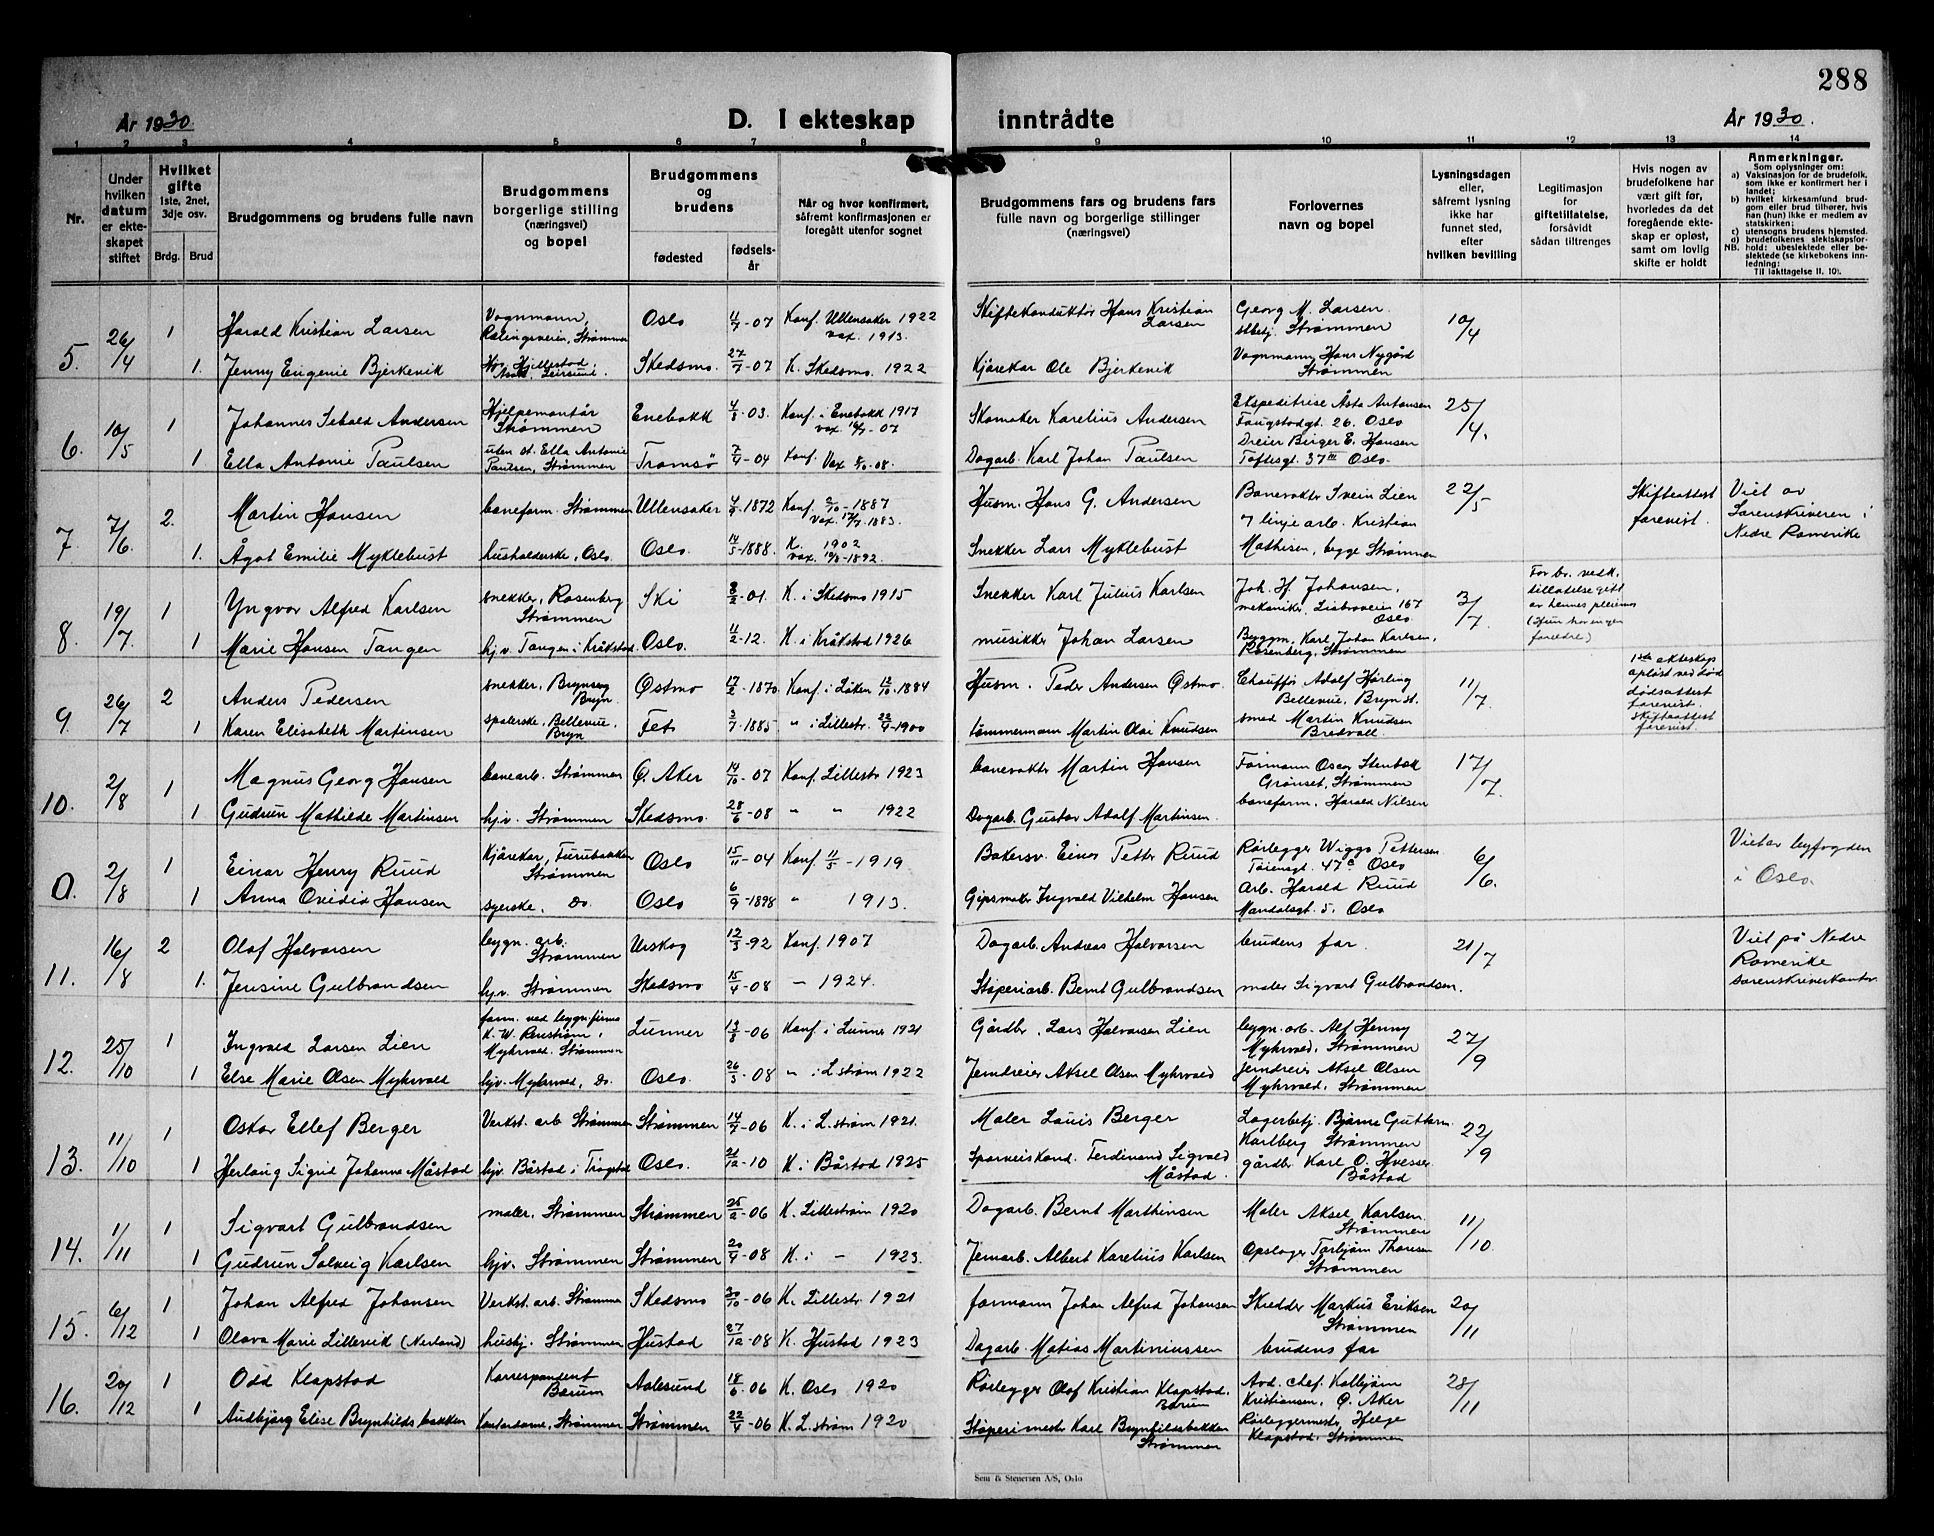 288
År 1930.
D. I ekteskap inntrådte
År 1930.
1 2 3 4 5 6 7 8 9 10 11 12 13 14
Nr.
Under hvilken datum er ekteskapet stiftet
Hvilket gifte 1ste, 2net, 3dje osv.
Brdg. Brud
Brudgommens og brudens fulle navn
Brudgommens borgerlige stilling (næringsvei) og bopel
Brudgommens og brudens
fødested
fødselsår
Når og hvor konfirmert, såfremt konfirmasjonen er foregått utenfor sognet
Brudgommens fars og brudens fars fulle navn og borgerlige stillinger (næringsvei)
Forlovernes navn og bopel
Lysningsdagen eller, såfremt lysning ikke har funnet sted, efter hvilken bevilling
Legitimasjon for giftetillatelse, forsåvidt sådan tiltrenges
Hvis nogen av brudefolkene har vært gift før, hvorledes da det foregående ekteskap er opløst, samt om lovlig skifte er holdt
Anmerkninger.
Som oplysninger om:
a) Vaksinasjon for de brudefolk, som ikke er konfirmert her i landet;
b) hvilket kirkesamfund brudgom eller brud tilhører, hvis han (hun) ikke er medlem av statskirken;
c) utensogns brudens hjemsted.
d) brudefolkenes slektskapsforhold: ubeslektede eller beslektede (se kirkebokens innledning:
NB. Til iakttagelse II. 10).
5. 26/4 1 Harald Kristian Larsen Vognmann, Strømmen Oslo 11/7-07 Konf. Ullensaker 1922 vax. 1913. Skiftekonduktör Hans Kristian Larsen Georg M. Larsen Strømmen 10/4
1. Jenny Eugenie Bjerkevik Skedsmo 27/7-07 K. Skedsmo 1922 Kjörekar Ole Bjerkevik Vognmann Hans Nygård Strømmen
6. 10/5 1 Johannes Sebald Andersen Hjelpemontör Strømmen Enebakk 4/8-03. Konf. i Enebakk 1917 Skomaker Karelius Andersen Ekspeditrise Asta Antonsen 26. Oslo 25/4.
1 Ella Antonie Paulsen uten st. Ella Antonie Paulsen, Strømmen Tromsö 7/4-04 Konf. Dagarb. Karl Johan Paulsen Dreier Birger E. Hansen Toftesgt. 37 III Oslo.
7. 7/6 2. Martin Hansen baneform. Strømmen Ullensaker 4/9-1872 Konf. 2/10-1887 Vax. 1883. Husm. Hans G. Andersen Banevokter Svein Lien 22/5 Skifteattest forevist. Viet av Sorenskriveren i Nedre Romerike
1. Ågot Emilie Myklebust husholderske, Oslo. Oslo. 14/5-1888. K. 1902 vax. 1892. Snekker Lars Myklebust 7 linje arb. Kristian Mathisen, begge Strømmen
8. 19/7. 1 Yngvar Alfred Karlsen snekker, Rosenberg Strømmen Ski 8/2-01. K. i Skedsmo 1915 Snekker Karl Julius Karlsen Joh. H. Johansen, mekaniker, 167 Oslo. 3/7. For br. vedk. tillatelse gitt av hennes pleiemor (Hun har ingen foreldre)
1 Marie Hansen Tangen hj.v. Tangen i Kråkstad. Oslo. 11/2-12. K. i Kråkstad 1926 musikker Johan Larsen Karl Johan Karlsen, Rosenberg, Strømmen
9. 26/7 2 Anders Pedersen snekker, Bryn. Östmo 17/2-1870 Konf. i Løken 12/10-1884 Husm. Peder Andersen Östmo. Chauffør Adolf Bellevue, Bryn st. 11/7. 1ste ekteskap opløst ved död dødsattest forevist. skifteattest forevist.
1 Karen Elisabeth Martinsen Bellevue, Bryn Fet 3/7-1885 " i Lillestr. 22/4-1900 tömmermann Martin Olai Knudsen smed Martin Knudsen Bredvoll.
10. 2/8 1 Magnus Georg Hansen banearb. Strømmen Ö. Aker 14/10-07 Konf. Lillestr 1923 banevokter Martin Hansen Formann Oscar Stenbak Strømmen 17/7.
1 Gudrun Mathilde Martinsen hj.v. Strømmen Skedsmo. 28/6-08 " " 1922 Dagarb. Gustav Adolf Martinsen. baneform. Harald Nilsen
0. 2/8 1 Einar Henry Ruud Kjörekar, Furubakken Strømmen Oslo 15/11-04 Konf. 11/5-1919 Bakersv. Einar Petter Ruud Rörlegger Wiggo Pettersen Töiensgt. 47c Oslo 6/6. Viet av byfogden i Oslo.
1 Anna Ovidia Hansen syerske. Do. Oslo 6/9-1898 " 1913. Gipsmaker Ingvald Vilhelm Hansen arb. Harald Ruud Mandalsgt. 5. Oslo
11. 16/8 2 Olaf Halvorsen bygn. arb. Strømmen Urskog 12/3-92 Konf. 1907 Dagarb. Andreas Halvorsen brudens far. 21/7 Viet på Nedre Romerike sorenskriverkontor
1. Jensine Gulbrandsen hj.v. Strømmen Skedsmo 15/4-08 " 1924. Støperiarb. Bernt Gulbrandsen maler Sigvart Gulbrandsen.
12. 25/10 1 Ingvald Larsen Lien form. ved bygn. firma Myhrvold. Strømmen Lunner 13/8-06 Konf. i Lunner 1921 Gårdbr. Lars Halvorsen Lien bygn. arb. Alf Henny Myhrvold, Strømmen 27/9
1 Else Marie Olsen Myhrvold hjv. Myhrvold, Do. Oslo. 26/3-08 " i L.strøm 1922 Jerndreier Aksel Olsen Myhrvold Jerndreier Aksel Olsen Myhrvold, Strømmen
13. 11/10 1 Oskar Ellef Berger Verkst. arb Strømmen Strømmen 14/7-06 K. i L.strøm 1921. Maler Louis Berger Lagerbetj. Bjarne Guttorm Karlberg Strømmen 22/9
1 Herlaug Sigrid Johanne Måstad hjv. Båstad i Trøgstad Oslo. 21/12-10 K. i Båstad 1925 Sporveiskond. Ferdinand Sigvald Måstad. gårdbr Karl O. Båstad
14. 1/11 1 Sigvart Gulbrandsen maler, Strømmen Strømmen 25/2-06 K. Lillestrøm 1920 Dagarb. Bernt Marthinsen Maler Aksel Karlsen. Strømmen 11/10.
1 Gudrun Solveig Karlsen hjv. Strømmen Strømmen 20/4-08 K. i " 1923. Jernarb. Albert Karelius Karlsen Opslager Torbjørn Thorsen Strømmen
15. 6/12 1 Johan Alfred Johansen Verkst. arb. Strømmen Skedsmo 30/10-06 K. Lillestr 1921 formann Johan Alfred Johansen Skredder Markus Eriksen Strømmen 20/11
1 Olava Marie Lillevik (Nerland) hushj. Strømmen Hustad 27/12-08 K. Hustad 1923 Dagarb. Matias Martiniussen brudens far
16. 20/12 1 Odd Klopstad Korrespondent Bærum Aalesund 18/6-06 K. Oslo 1920 Rörlegger Olof Kristian Klopstad. Bærum Avd. chef. Kolbjørn Kristiansen, Ö. Aker 28/11
1 Audbjørg Elise Brynhildsbakken Kontordame, Strømmen Strømmen 22/4-06 K. L.strøm 1920 Støperimester Karl Brynhildsbakken Strømmen Rörleggermester Helge Klopstad. Strømmen
Sem & Stenersen A/S, Oslo